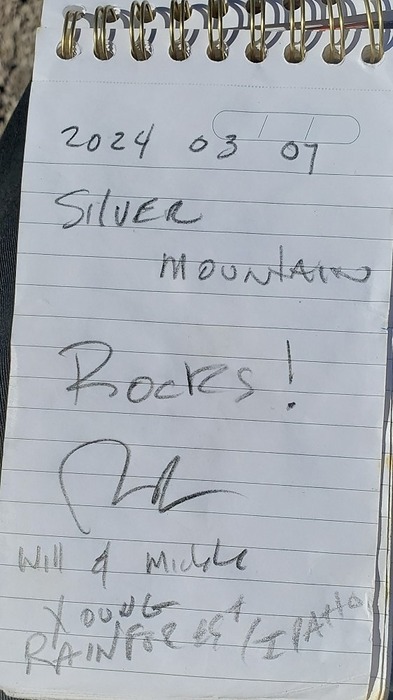 2024 03 07
SILVER
MOUNTAIN
Rocks!
Will & Michele
YOUNG
RAINFOREST /